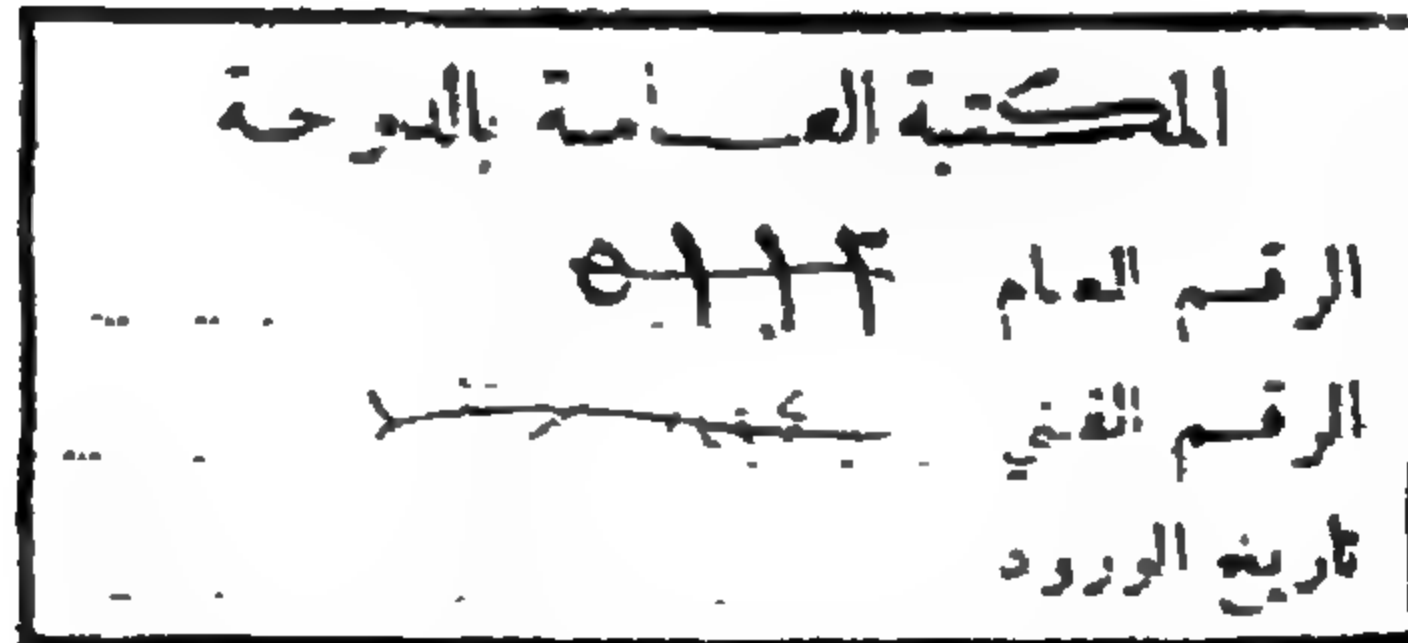 المكتبة العامة بالدوحة
الرقم العام ٥١١٢
الرقم الفني
تاريخ الورود